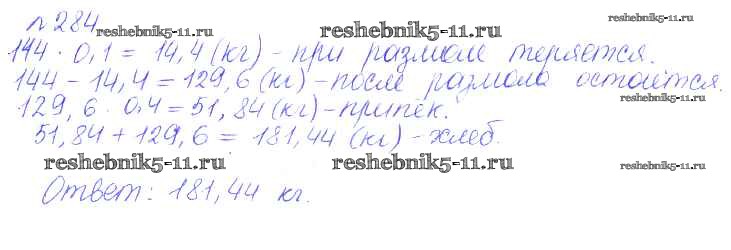 №284 reshebnik5-11.ru reshebnik5-11.ru
144 · 0,1 = 14,4 (кг) - при размоле теряется.
144 - 14,4 = 129,6 (кг) - после размола остаётся.
reshebnik5-11.ru
129,6 · 0,4 = 51,84 (кг) - припёк.
51,84 + 129,6 = 181,44 (кг) - хлеб.
reshebnik5-11.ru reshebnik5-11.ru reshebnik5-11.ru
Ответ: 181,44 кг.